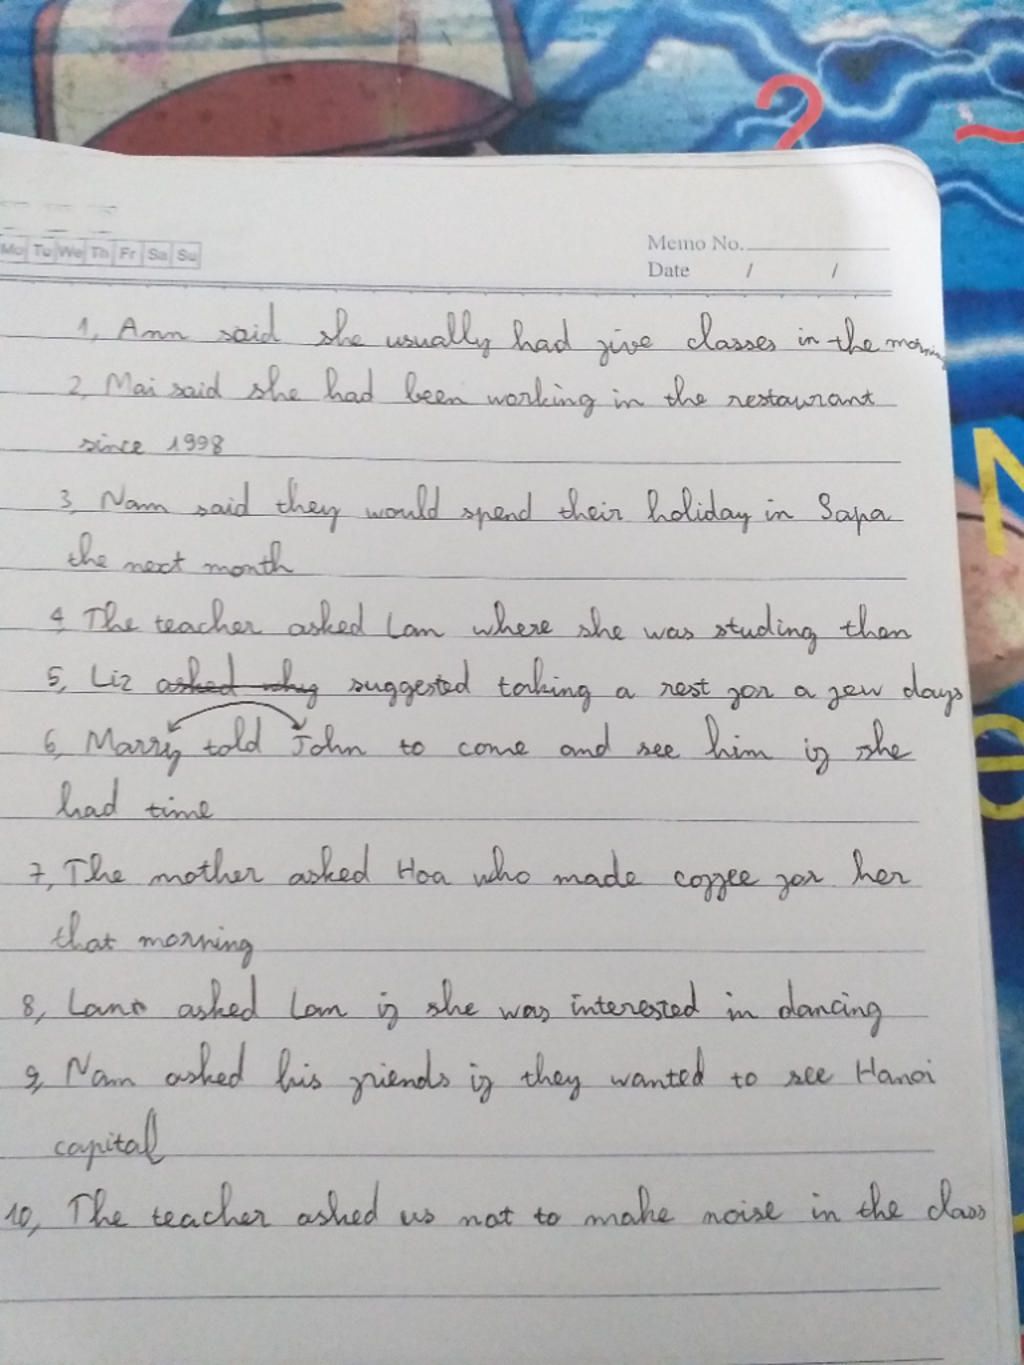 2
Mo Tu We Th Fr Sa Su
Memo No.
Date / /
1, Ann said she usually had five classes in the morning
2, Mai said she had been working in the restaurant
since 1998
3, Nam said they would spend their holiday in Sapa
the next month
4, The teacher asked Lan where she was studing then
5, Liz asked why suggested taking a rest for a few days
6, Marry told John to come and see him if she
had time
7, The mother asked Hoa who made coffee for her
that morning
8, Lan asked Lan if she was interested in dancing
9, Nam asked his friends if they wanted to see Hanoi
capital
10, The teacher asked us not to make noise in the class
N
e